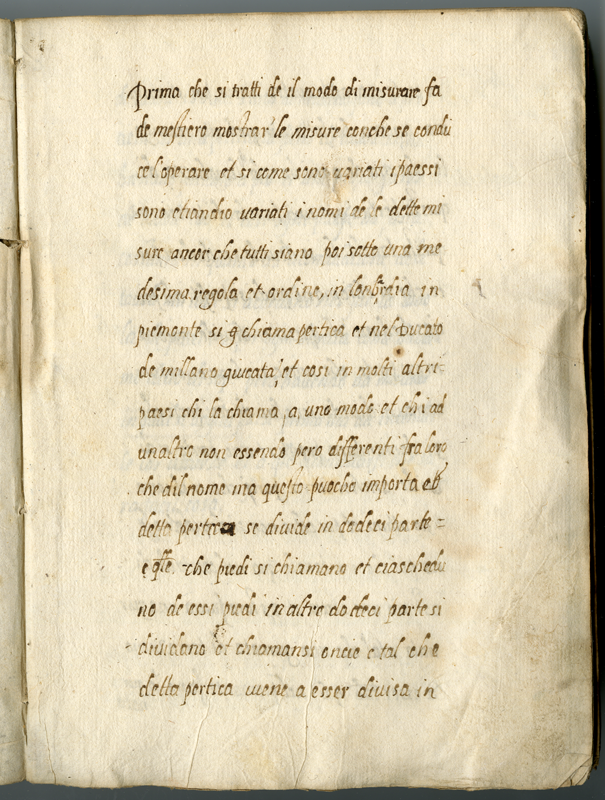 Prima che si tratti de il modo di misurare fa
de mestiero mostrar le misure conche se condu
ce l'operare et si come sono variati i paessi
sono etiandio variati i nomi de le dette mi
sure ancor che tutti siano poi sotto una me
desima regola et ordine, in lonbrdia in
piemonte si chiama pertica et nel Ducato
de millano giucata, et cosi in molti altri
paesi chi la chiama, a, uno modo et chi ad
unaltro non essendo pero differenti fra loro
che dil nome ma questo puocho importa et
detta pertica se divide in dodeci parte =
e qlle che piedi si chiamano et ciaschedu
no de essi piedi in altre dodeci parte si
dividano et chiamansi oncie e tal che
detta pertica viene a esser divisa in